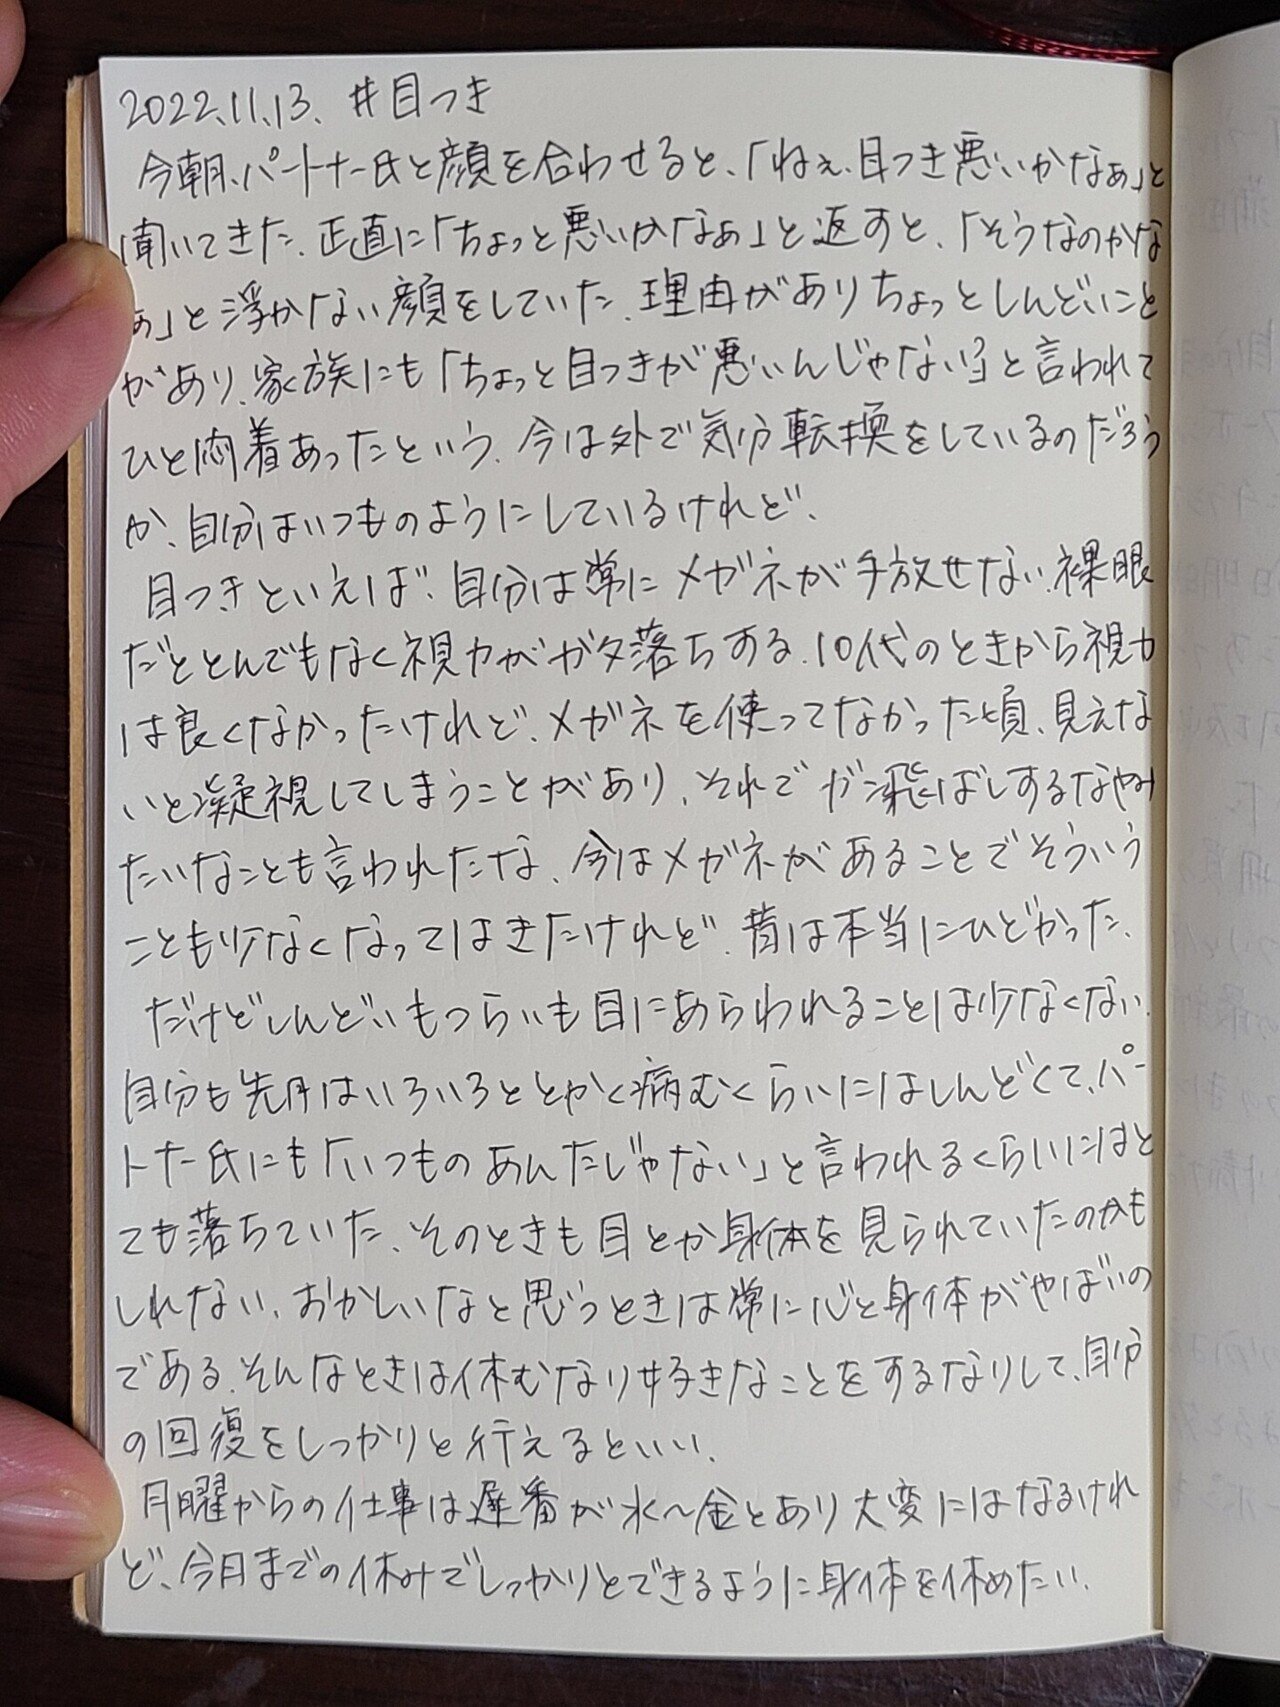 2022.11.13. #目つき
今朝、パートナー氏と顔を合わせると、「ねぇ、目つき悪いかなぁ」と
聞いてきた。正直に「ちょっと悪いかなぁ」と返すと、「そうなのかな
ぁ」と浮かない顔をしていた。理由がありちょっとしんどいこと
があり、家族にも「ちょっと目つきが悪いんじゃない?」と言われて
ひと悶着あったという。今は外で気分転換をしているのだろう
か、自分はいつものようにしているけれど。
目つきといえば、自分は常にメガネが手放せない。裸眼
だととんでもなく視力がガタ落ちする。10代のときから視力
は良くなかったけれど、メガネを使ってなかった頃、見えな
いと凝視してしまうことがあり、それでガン飛ばしするなやみ
たいなことも言われたな。今はメガネがあることでそういう
ことも少なくなってはきたけれど、昔は本当にひどかった。
だけどしんどいもつらいも目にあらわれることは少なくない。
自分も先月はいろいろととかく病むくらいにはしんどくて、パー
トナー氏にも「いつものあんたじゃない」と言われるくらいにはと
ても落ちていた。そのときも目とか身体を見られていたのかも
しれない。おかしいなと思うときは常に心と身体がやばいの
である。そんなときは休むなり好きなことをするなりして、自分
の回復をしっかりと行えるといい。
月曜からの仕事は遅番が水〜金とあり大変にはなるけれ
ど、今月までの休みでしっかりとできるように身体を休めたい。